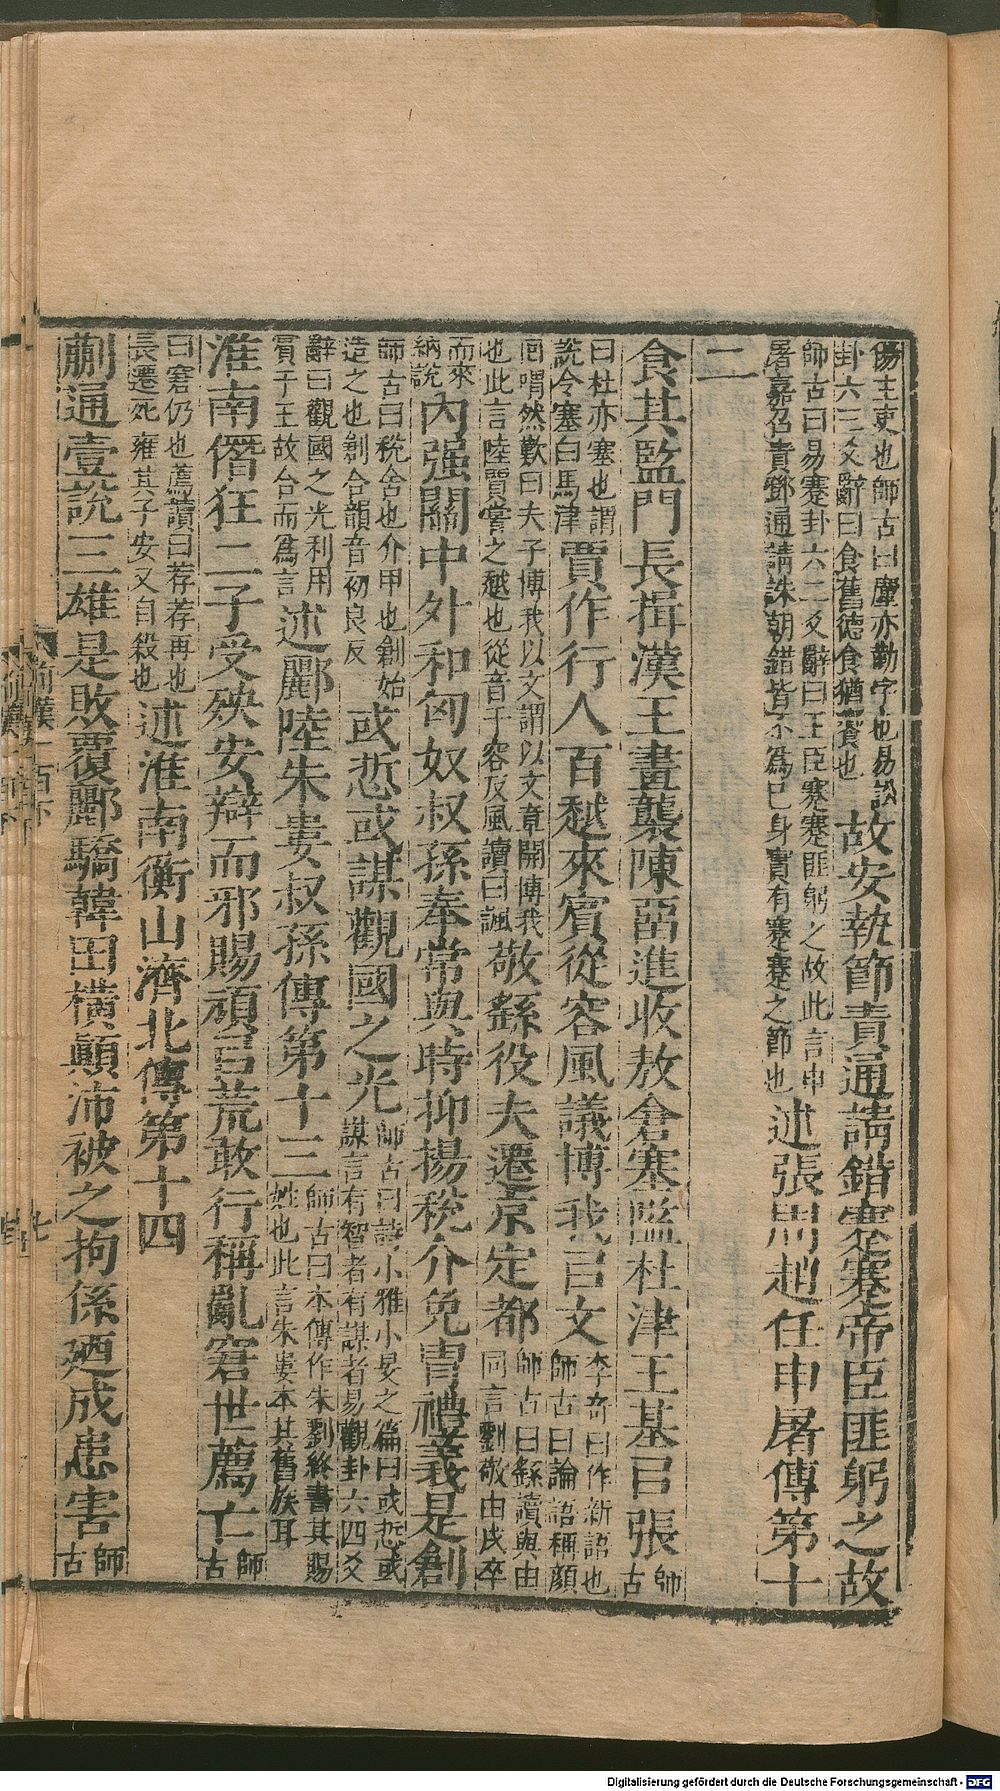 傷主吏也師古曰塵亦勤字也易訟
卦六三爻辭曰食舊德食猶饗也故安執節責通請錯蹇蹇帝臣匪躬之故
師古曰易蹇卦六二爻辭曰王臣蹇蹇匪躬之故此言申
屠嘉召責鄧通請誅朝錯皆不為己身實有蹇蹇之節也述張周趙任申屠傳第十
二
食其監門長揖漢王畫襲陳留進收敖倉塞隘杜津王基㠯張師古
曰杜亦塞也謂
說令塞白馬津賈作行人百越來賓從容風議博我㠯文李奇曰作新語也師古曰論語稱顏
回喟然歎曰夫子博我以文謂以文章開博我
也此言陸賈嘗之越也從音千容反風讀曰諷敬繇役夫遷京定都師古曰繇讀與由同言劉敬由戍卒
而來
納說內强關中外和匈奴叔孫奉常與時抑揚稅介免冑禮義是創
師古曰稅舍也介甲也創始
造之也創合韻音初良反或悊或謀觀國之光師古曰詩小雅小旻之篇曰或悊或謀言有智者有謀者易觀卦六四爻
辭曰觀國之光利用
賓于王故合而為言述酈陸朱婁叔孫傳第十三師古曰本傳作朱劉終書其賜姓也此言朱婁本其舊族耳
淮南僭狂二子受殃安辯而邪賜頑㠯荒敢行稱亂窘世薦亡師古
曰窘仍也薦讀曰荐荐再也
長遷死雍其子安又自殺也述淮南衡山濟北傳第十四
蒯通壹說三雄是敗覆酈驕韓田橫顛沛被之拘係廼成患害師古
前漢一百下
Digitalisierung gefördert durch die Deutsche Forschungsgemeinschaft - DFG